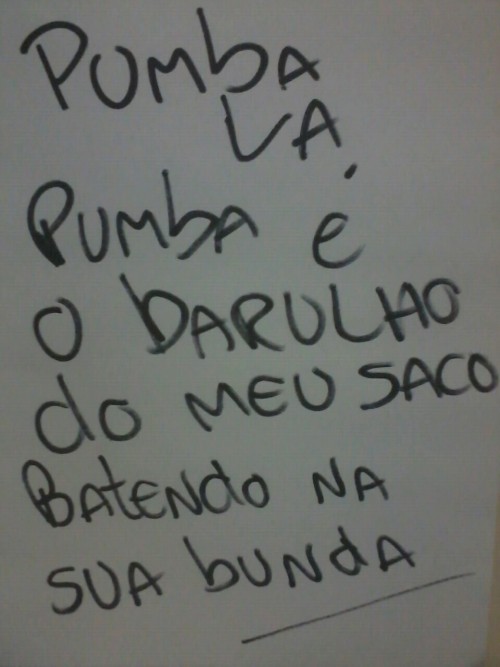 PUMbA
LA
PUMbA é
O bARULHO
do MEU SACO
BAtENdO NA
SUA bUNdA